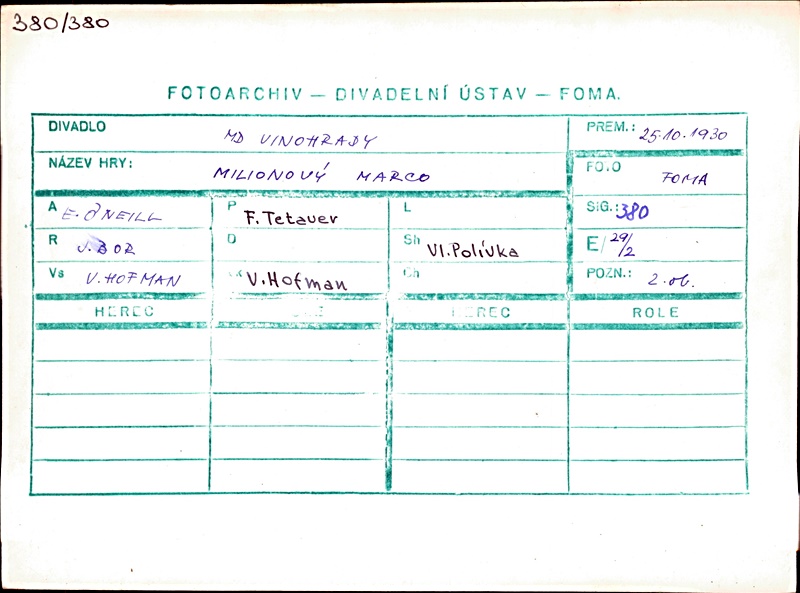 380/380
FOTOARCHIV — DIVADELNÍ ÚSTAV — FOMA.
DIVADLO MD VINOHRADY PREM.: 25.10.1930
NÁZEV HRY: MILIONOVÝ MARCO FOTO FOMA
A E. O'NEILL P F. Tetauer L SIG.: 380
R J. BOR D Sh Vl. Polívka E/ 29/2
Vs V. HOFMAN V. Hofman Ch POZN.: 2. ob.
HEREC HEREC ROLE